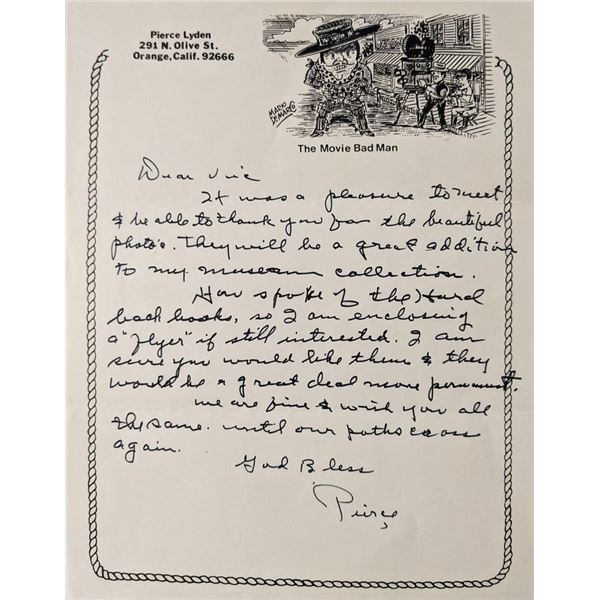 Pierce Lyden
291 N. Olive St.
Orange, Calif. 92666
MARIO DEMARCO
The Movie Bad Man
Dear Vic
It was a pleasure to meet
& be able to thank you for the beautiful
photo's. They will be a great addition
to my museum collection.
You spoke of the Hard
back books, so I am enclosing
a "flyer" if still interested. I am
sure you would like them & they
would be a great deal more permanent.
We are fine & wish you all
the same. until our paths cross
again.
God Bless
Pierce